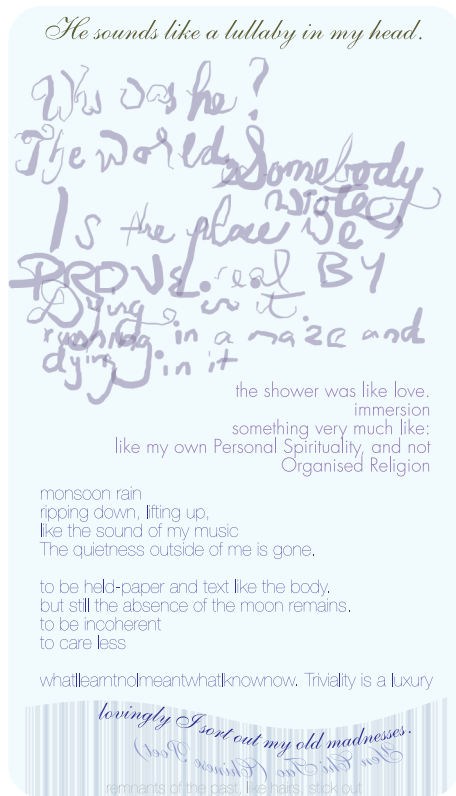 He sounds like a lullaby in my head.
Who was he?
The world, Somebody
wrote,
Is the place we
PROVE real BY
Dying in it.
rushing in a maze and
dying in it
the shower was like love.
immersion
something very much like:
like my own Personal Spirituality, and not
Organised Religion
monsoon rain
ripping down, lifting up,
like the sound of my music
The quietness outside of me is gone.
to be held-paper and text like the body.
but still the absence of the moon remains.
to be incoherent
to care less
whatIlearntnoImeantwhatIknownow. Triviality is a luxury
lovingly I sort out my old madnesses.
Yen Chi Tao (Chinese Poet)
remnants of the past, like hairs, stick out